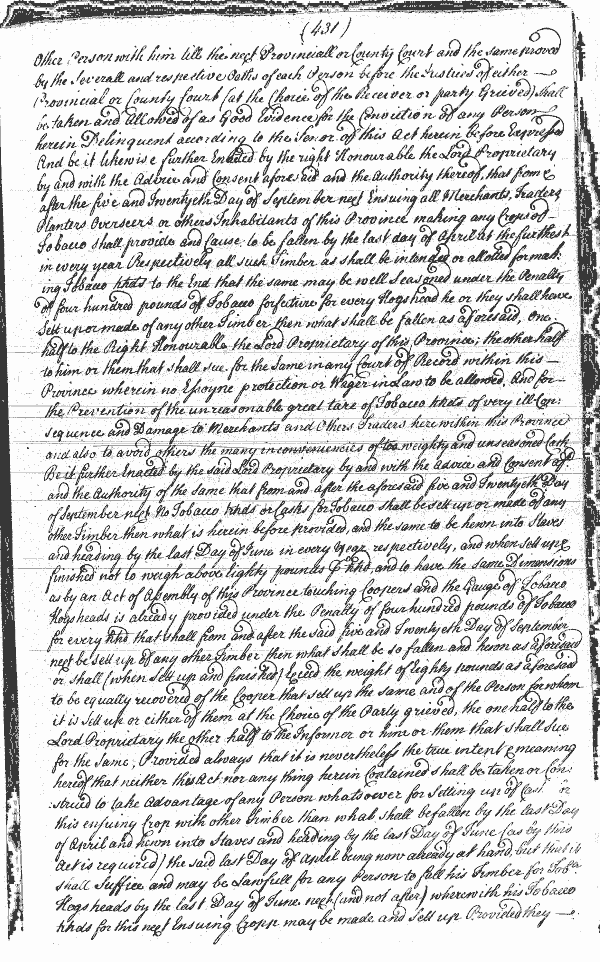 (431)
Other Person with him till the next Provinciall or County Court and the same proved
by the Severall and respective Oaths of each Person before the Justices of either
Provincial or County Court (at the Choice of the Receiver or party Grieved) shall
be taken and Allowed of as Good Evidence for the Conviction of any Person
herein Delinquent according to the Tenor of this Act herein before Expressed
And be it likewise further Enacted by the right Honourable the Lord Proprietary
by and with the Advice and Consent aforesaid and the Authority thereof, that from &
after the five and Twentyeth Day of September next Ensuing all Merchants, Traders
Planters Overseers or others Inhabitants of this Province making any Crops of
Tobacco shall provide and Cause to be fallen by the last day of April at the furthest
in every year Respectively all such Timber as shall be intended or allotted for mak:
ing Tobacco hhds to the End that the same may be well Seasoned under the Penalty
of four hundred pounds of Tobacco forfeiture for every Hogshead he or they shall have
Sett up or made of any other Timber then what shall be fallen as aforesaid, one
half to the Right Honourable the Lord Proprietary of this Province; the other half
to him or them that shall sue for the Same in any Court of Record within this
Province wherein no Essoyne protection or Wager in Law to be allowed, And for
the Prevention of the unreasonable great tare of Tobacco hhds of very ill Con:
sequence and Damage to Merchants and Others Traders here within this Province
and also to avoid others the many inconveniencies of too weighty and unseasoned Cask
Be it further Enacted by the said Lord Proprietary by and with the Advice and Consent afd
and the Authority of the Same that from and after the aforesaid five and Twentyeth Day
of September next No Tobacco hhds or Casks for Tobacco shall be sett up or made of any
other Timber then what is herein before provided, and the same to be hewn into Staves
and heading by the last Day of June in every year respectively, and when sett up &
finished not to weigh above Eighty pounds p hhd, and to have the same Dimensions
as by an Act of Assembly of this Province touching Coopers and the Gauge of Tobacco
Hogsheads is already provided under the Penalty of four hundred pounds of Tobacco
for every hhd that shall from and after the said five and Twentyeth Day of September
next be sett up of any other Timber, then what shall be so fallen and hewn as aforesaid
or shall (when sett up and finished) Exceed the weight of Eighty pounds as aforesaid
to be equally recovered of the Cooper that sett up the same and of the Person for whom
it is sett up or either of them at the Choice of the Party grieved, the one half to the
Lord Proprietary the other half to the Informer or him or them that shall Sue
for the same, Provided always that it is nevertheless the true intent & meaning
hereof that neither this Act nor any thing herein Contained shall be taken or Con:
strued to take Advantage of any Person whatsoever for Setting up of Cask for
this ensuing Crop with other Timber than what shall be fallen by the last Day
of April and hewn into Staves and heading by the last Day of June (as by this
Act is required) the said last Day of April being now already at hand, but that it
shall Suffice and may be Lawfull for any Person to fall his Timber for Tobo
Hogsheads by the last Day of June next (and not after) wherewith his Tobacco
hhds for this next Ensuing Cropp may be made and sett up Provided they